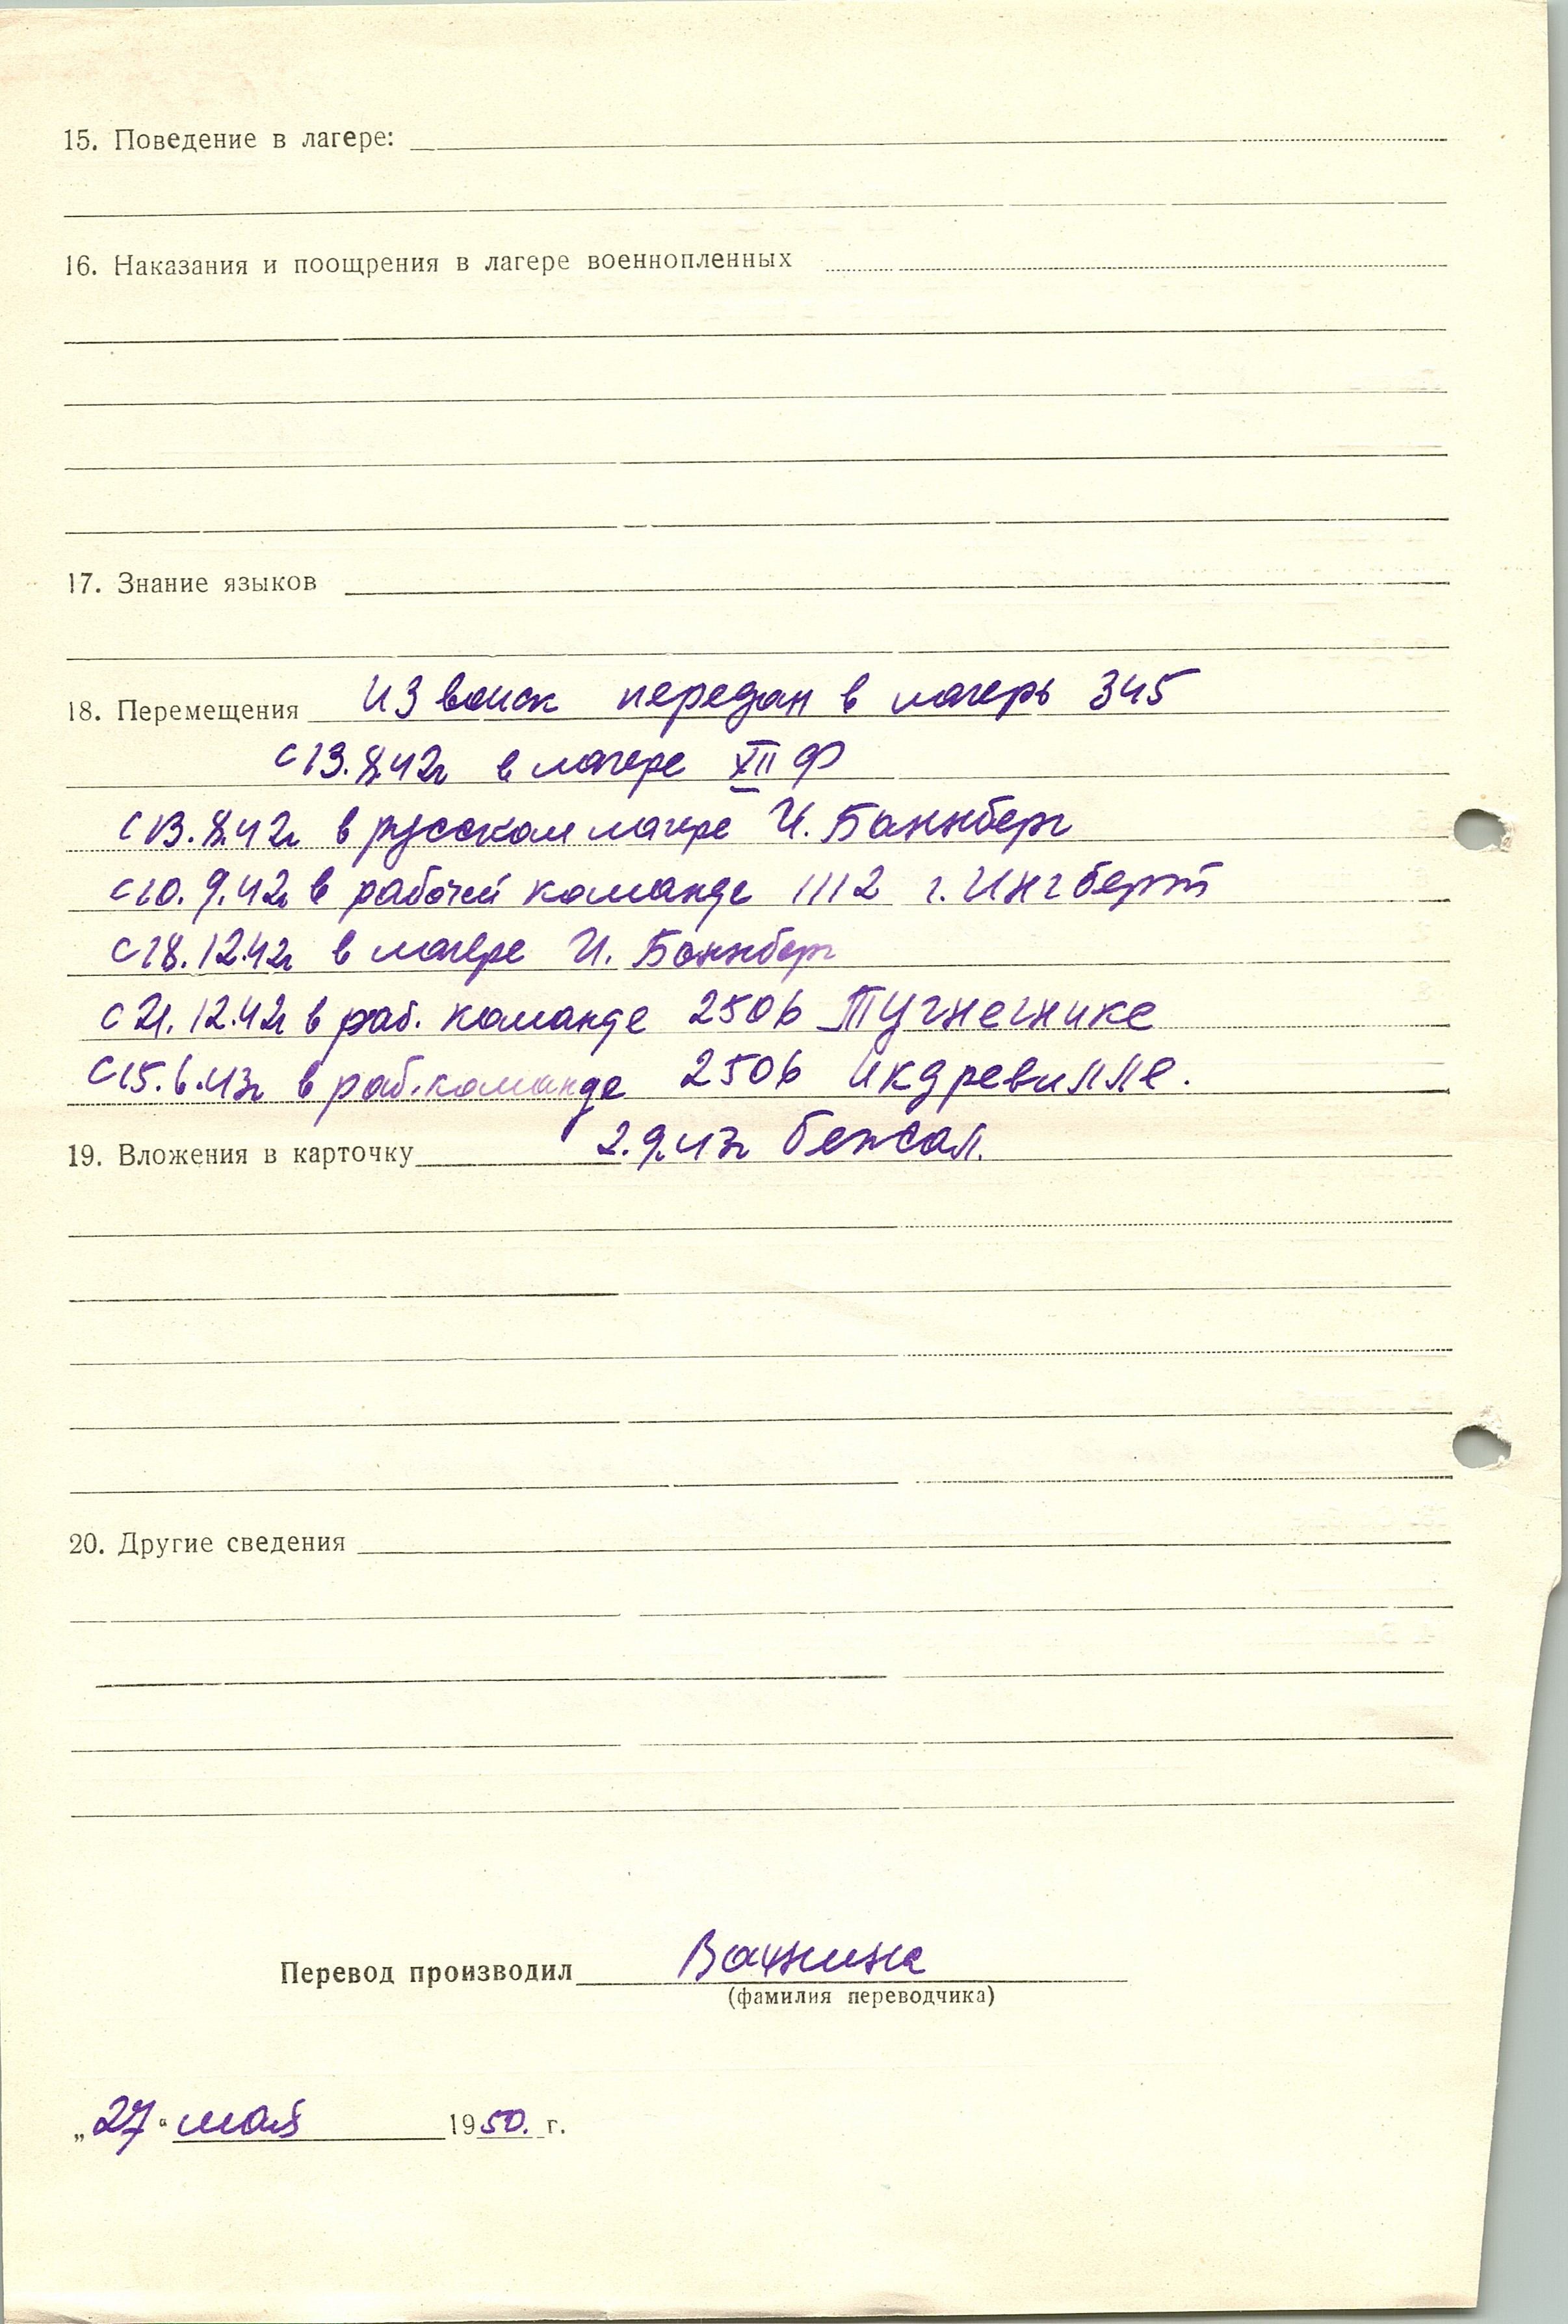 15. Поведение в лагере:
16. Наказания и поощрения в лагере военнопленных
17. Знание языков
18. Перемещения из войск передан в лагерь 345
с 13.8.42г в лагере XII Ф
с 13.8.42г в русском лагере И. Баннберг
с 10.9.42г в рабочей команде 1112 г. Ингберт
с 18.12.42г в лагере И. Баннберг
с 21.12.42г в раб. команде 2506 Тугнегнике
с 15.6.43г в раб. команде 2506 Икдревилле.
19. Вложения в карточку 2.9.43г бежал.
20. Другие сведения
Перевод производил
(фамилия переводчика)
„27“ мая 1950. г.